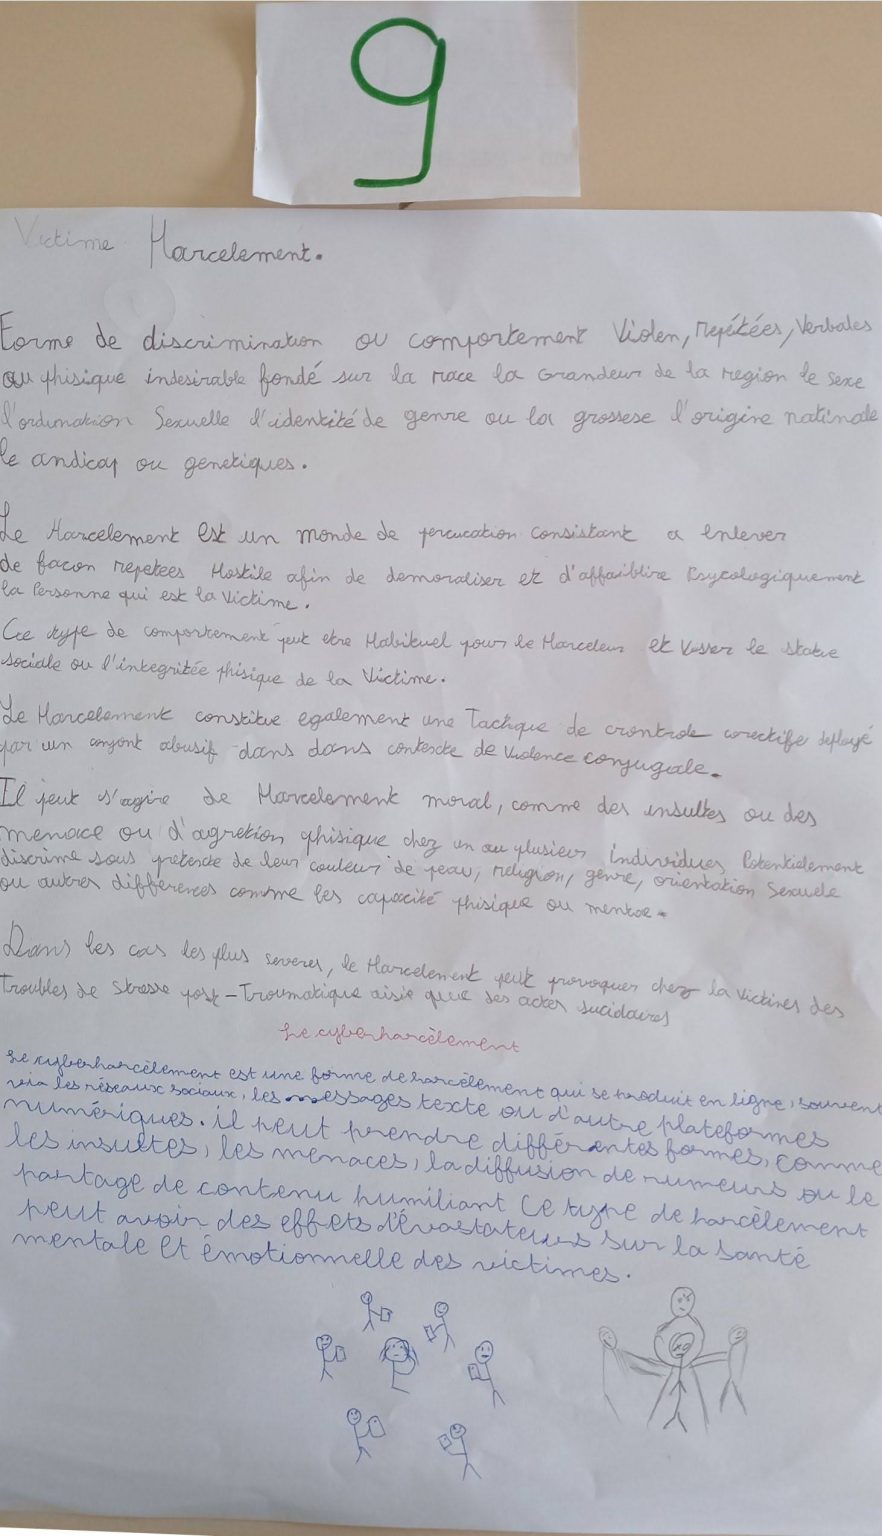 9
Victime Harcelement.
Forme de discrimination ou comportement Violen, repétées, Verbales
ou phisique indesirable fondé sur la race la Grandeur de la region le sexe
l'ordination Sexuelle d'identité de genre ou la grossese l'origine natinale
le andicap ou genetiques.
Le Harcelement est un monde de percucation consistant a enlever
de facon repetees Hostile afin de demoraliser et d'affaiblire Psycologiquement
la Personne qui est la Victime.
Ce type de comportement peut etre Habituel pour le Harceleur et Visser le statue
sociale ou l'integritée phisique de la Victime.
Le Harcelement constitue egalement une Tachque de crontrole corectife deployé
par un conjont abusif dans dans contexte de Violence conjugale.
Il peut s'agire de Harcelement moral, comme des insultes ou des
menace ou d'agretion phisique chez un ou plusieur individues Potentielement
discrime sous pretexte de leur couleur de peau, religion, genre, orientation Sexuele
ou autres differences comme les capacité phisique ou mentae.
Dans les cas les plus severes, le Harcelement peut provoquer chez la Victines des
Troubles de Stresse post-Troumatique aisie que des actes sucidaires
Le cyberharcèlement
Le cyberharcèlement est une forme de harcèlement qui se produit en ligne, souvent
via les réseaux sociaux, les messages texte ou d'autre plateformes
numériques. il peut prendre différentes formes, comme
les insultes, les menaces, la diffusion de rumeurs ou le
partage de contenu humiliant Ce type de harcèlement
peut avoir des effets dévastateurs sur la santé
mentale et émotionnelle des victimes.